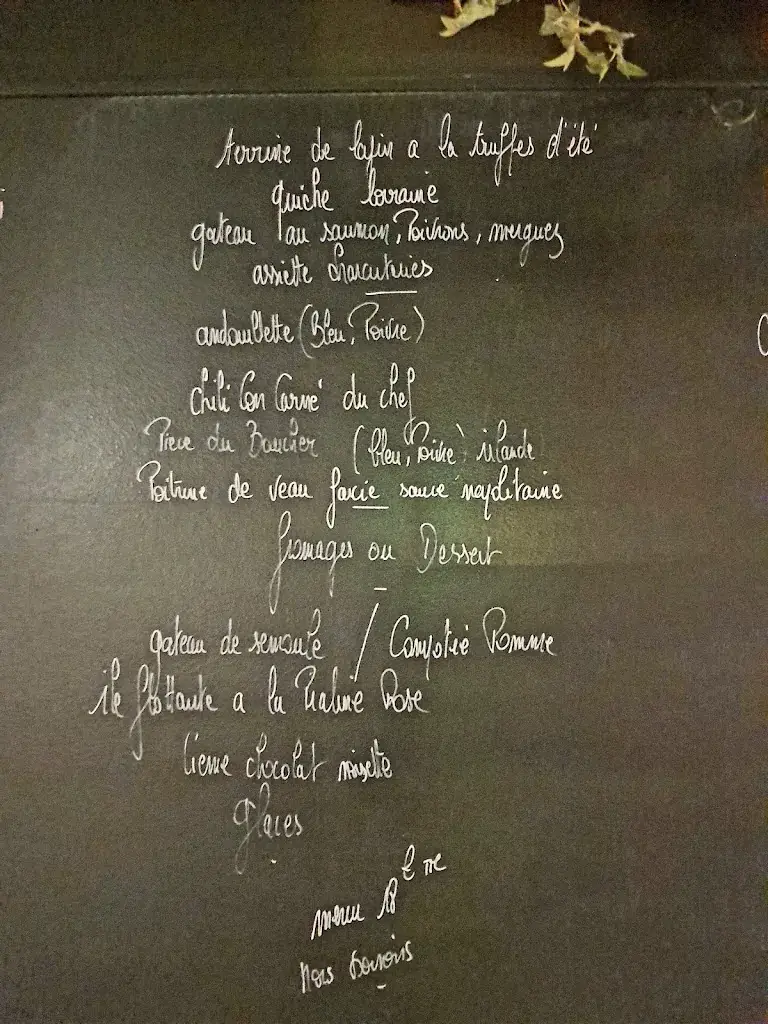 terrine de lapin a la truffes d'été
quiche lorraine
gateau au saumon, Poivrons, merguez
assiette charcuteries
andouillette (Bleu, Poivre)
Chili Con Carné du chef
Piece du Boucher (bleu, Poivre) irlande
Poitrine de veau farcie sauce napolitaine
fromages ou Dessert
gateau de semoule / Compotée Pomme
ile flottante a la Praline Rose
Creme chocolat noisette
glaces
menu 18 € TTC
Hors boissons